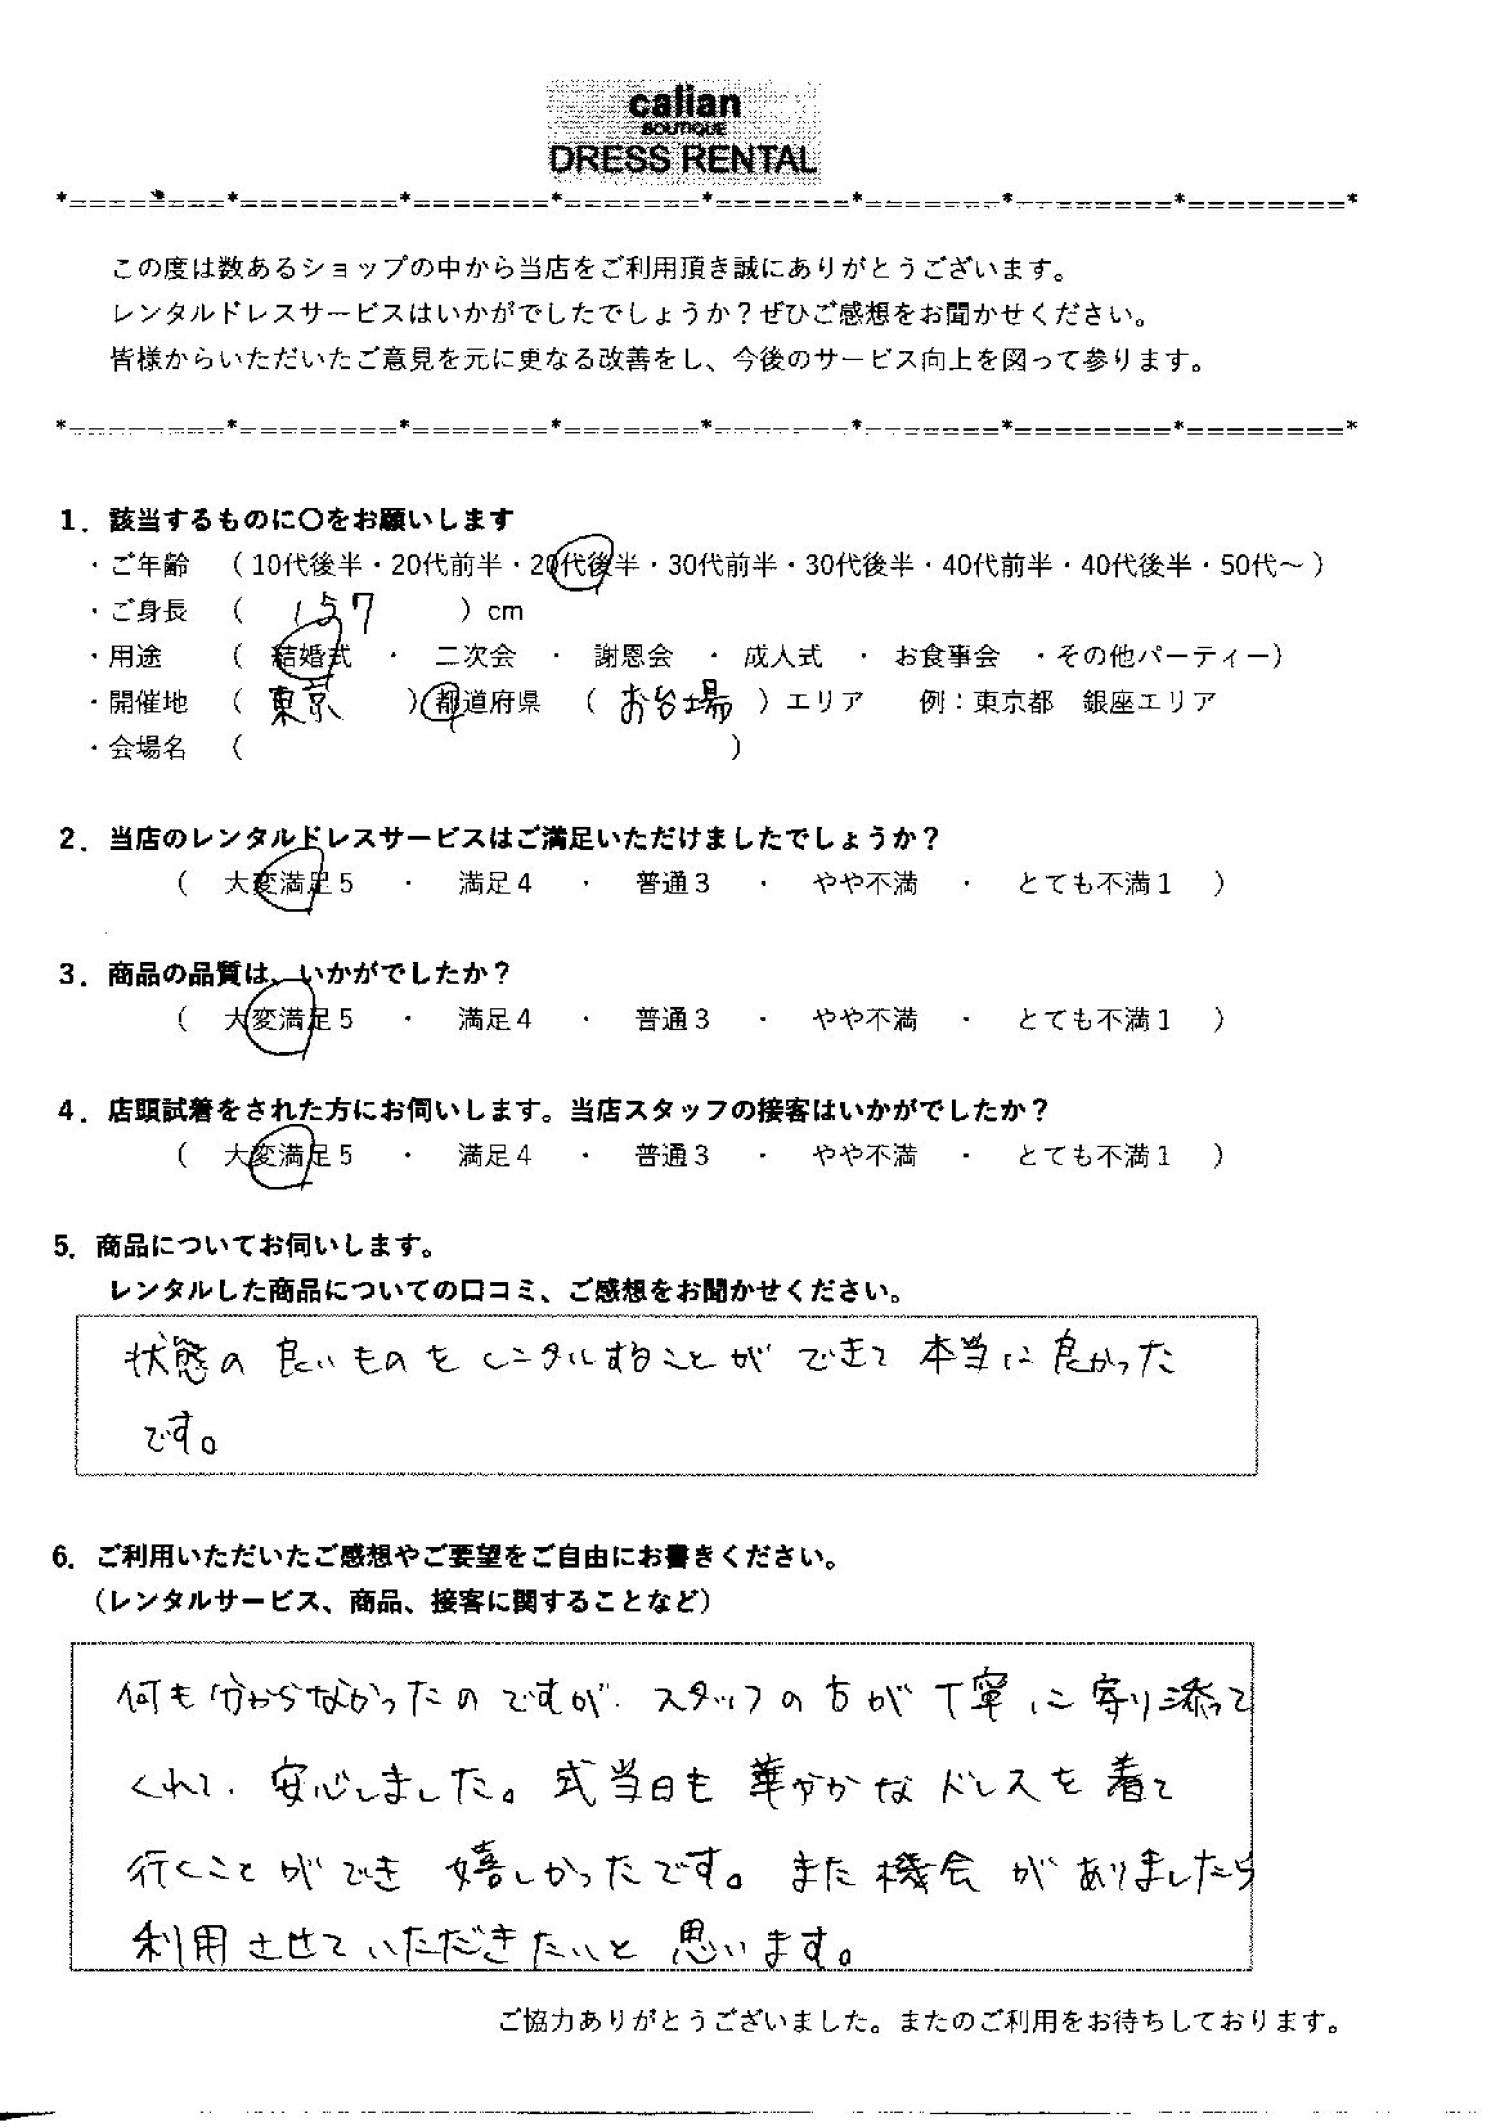 calian
BOUTIQUE
DRESS RENTAL
*========*========*=======*=======*=======*=======*========*========*
この度は数あるショップの中から当店をご利用頂き誠にありがとうございます。
レンタルドレスサービスはいかがでしたでしょうか？ぜひご感想をお聞かせください。
皆様からいただいたご意見を元に更なる改善をし、今後のサービス向上を図って参ります。
*========*========*=======*=======*=======*=======*========*========*
1．該当するものに〇をお願いします
・ご年齢　（10代後半・20代前半・20代後半・30代前半・30代後半・40代前半・40代後半・50代～）
・ご身長　（　157　）cm
・用途　（　結婚式　・　二次会　・　謝恩会　・　成人式　・　お食事会　・その他パーティー）
・開催地　（　東京　）都道府県　（　お台場　）エリア　例：東京都　銀座エリア
・会場名　（　　　）
2．当店のレンタルドレスサービスはご満足いただけましたでしょうか？
（　大変満足5　・　満足4　・　普通3　・　やや不満　・　とても不満1　）
3．商品の品質は、いかがでしたか？
（　大変満足5　・　満足4　・　普通3　・　やや不満　・　とても不満1　）
4．店頭試着をされた方にお伺いします。当店スタッフの接客はいかがでしたか？
（　大変満足5　・　満足4　・　普通3　・　やや不満　・　とても不満1　）
5．商品についてお伺いします。
レンタルした商品についての口コミ、ご感想をお聞かせください。
状態の良いものをレンタルすることができて本当に良かった
です。
6．ご利用いただいたご感想やご要望をご自由にお書きください。
（レンタルサービス、商品、接客に関することなど）
何も分からなかったのですが、スタッフの方が丁寧に寄り添って
くれて、安心しました。式当日も華やかなドレスを着て
行くことができ嬉しかったです。また機会がありましたら
利用させていただきたいと思います。
ご協力ありがとうございました。またのご利用をお待ちしております。